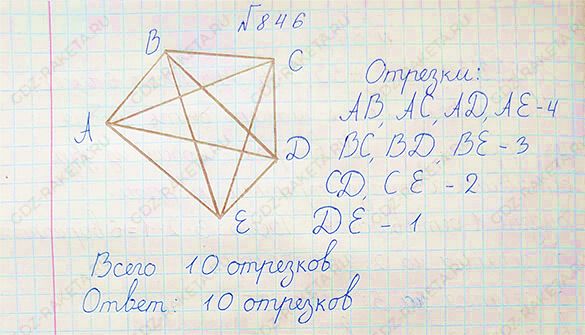 №846
B
C
A
D
E
Отрезки:
AB, AC, AD, AE - 4
BC, BD, BE - 3
CD, CE - 2
DE - 1
Всего 10 отрезков
Ответ: 10 отрезков
GDZ-RAKETA.RU